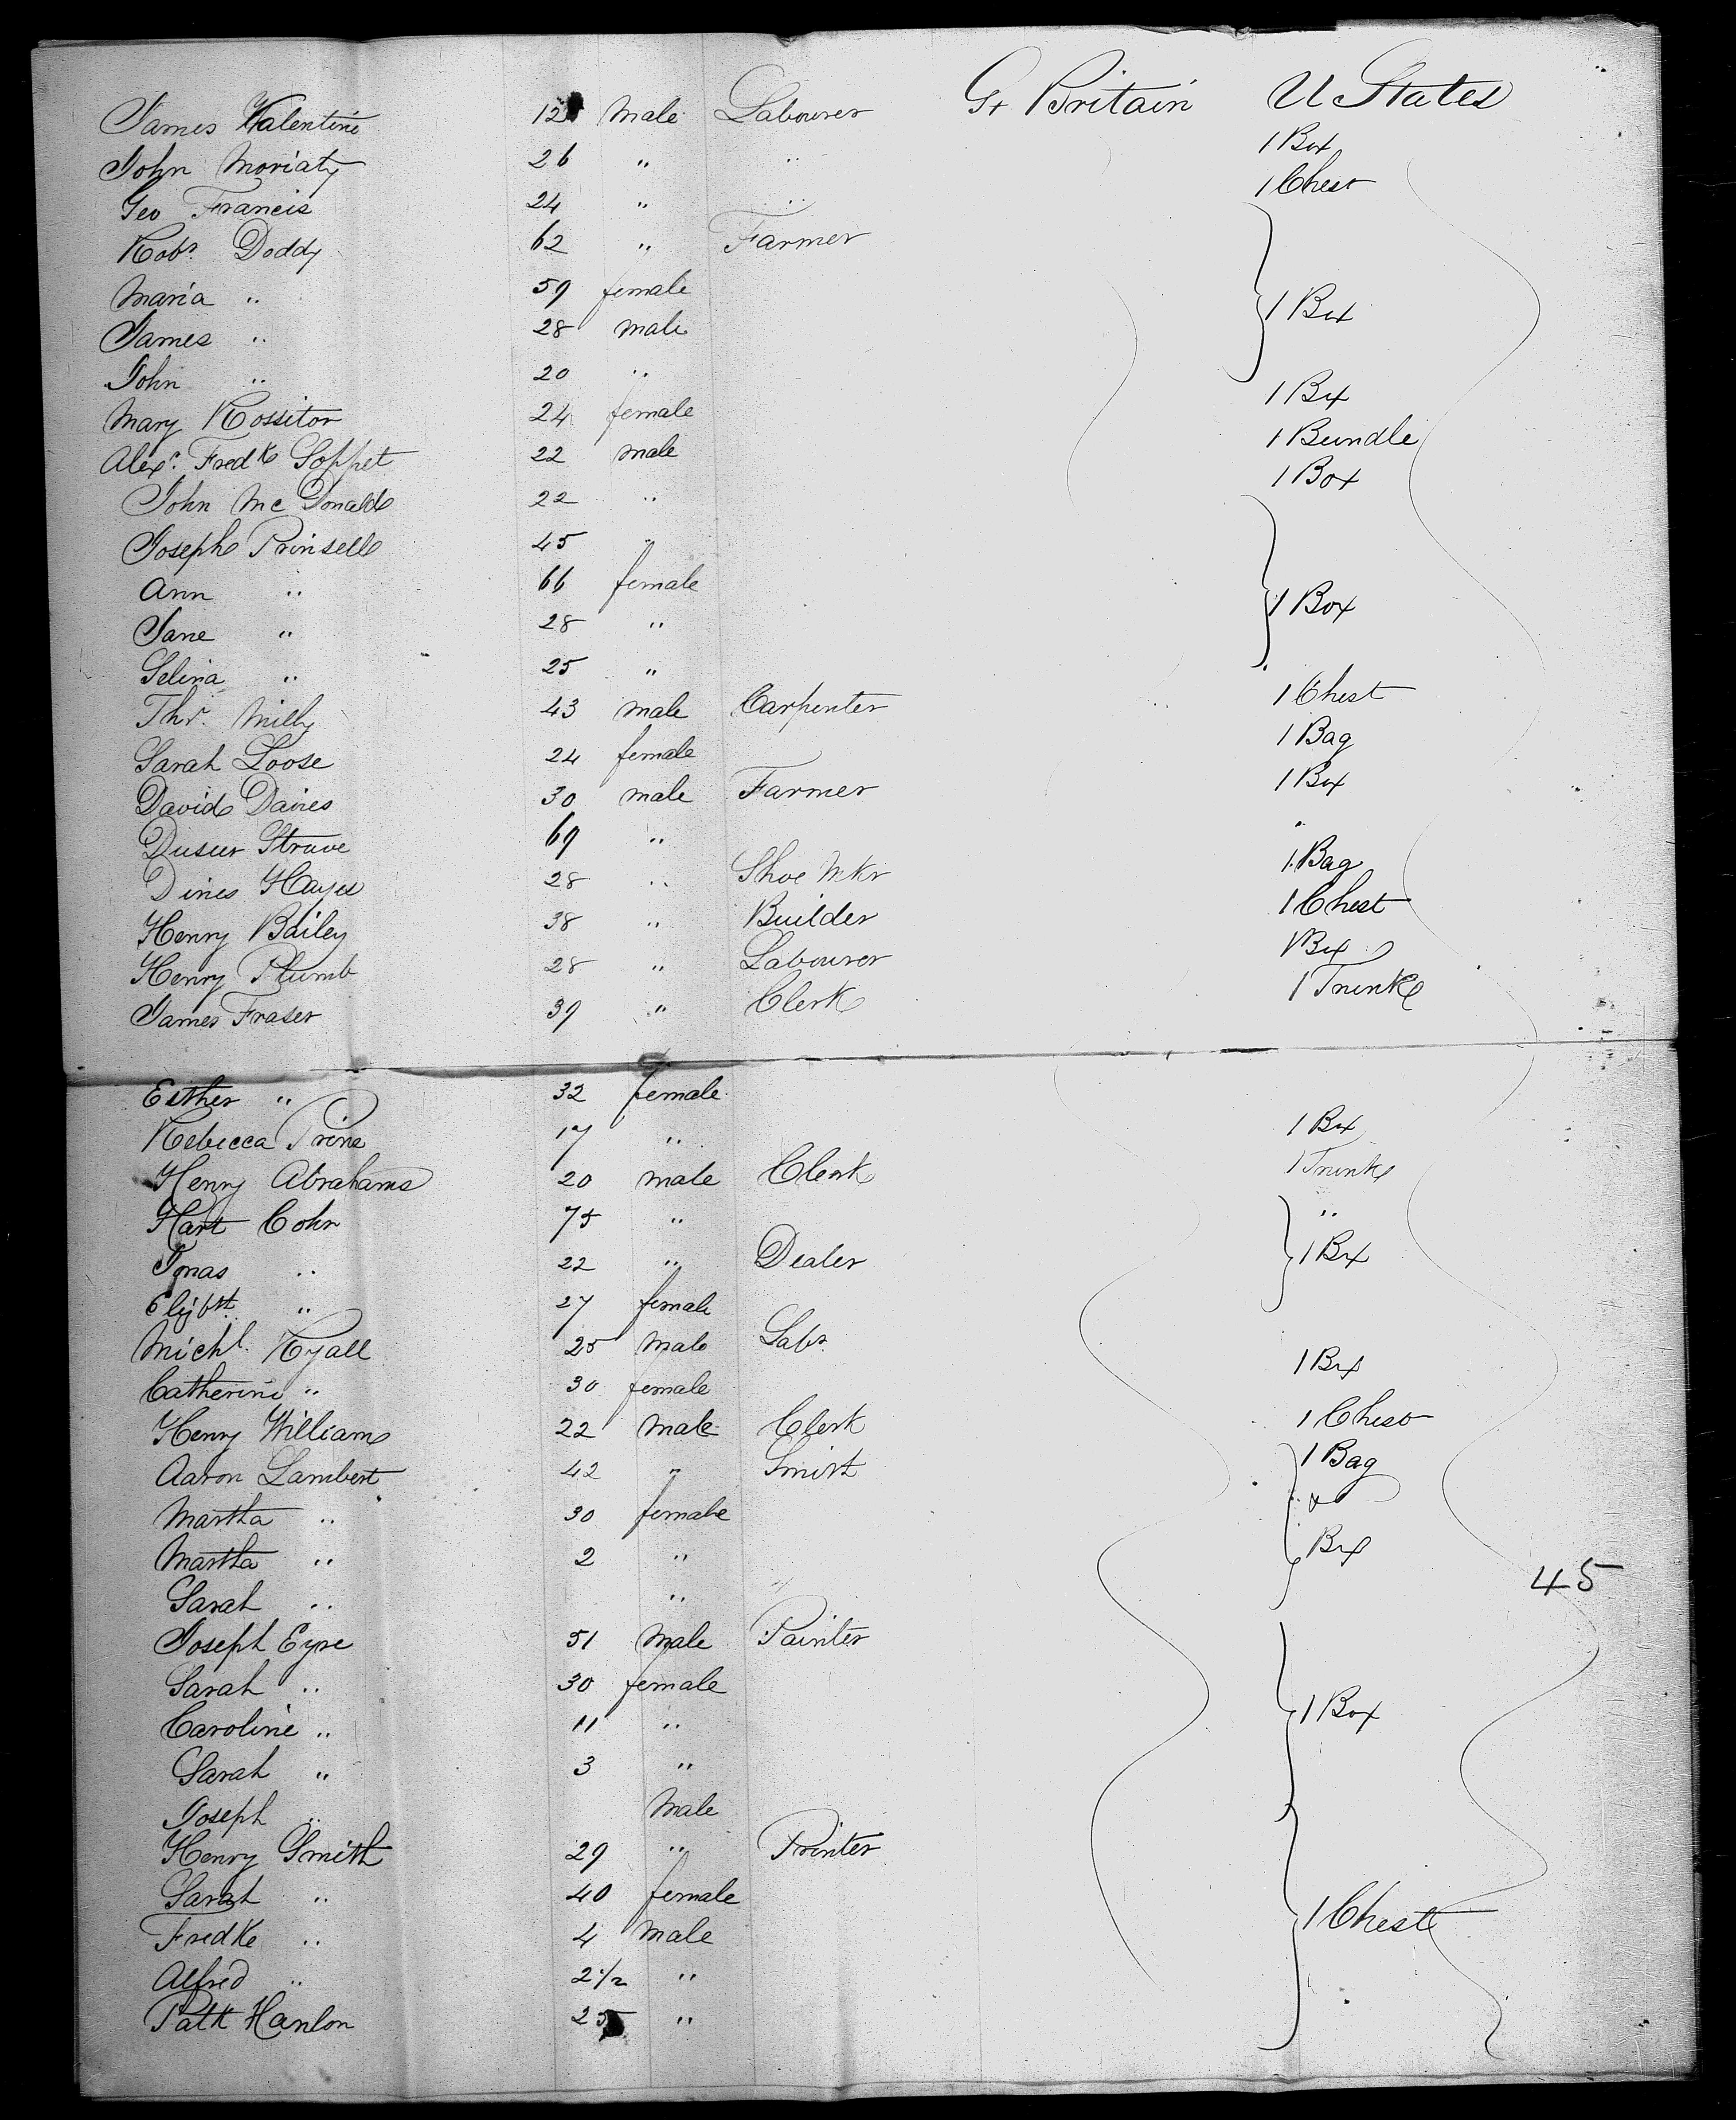 James Valentine 12 Male Labourer Gt Britain U States
John Moriaty 26 " " 1 Box
Geo Francis 24 " " 1 Chest
Robt Doddy 62 " Farmer
Maria " 59 female
James " 28 male 1 Box
John " 20 "
Mary Rossitor 24 female 1 Box
Alexr Fredk Soppet 22 male 1 Bundle
John McDonald 22 " 1 Box
Joseph Prinsell 45 "
Ann " 66 female
Jane " 28 " 1 Box
Selina " 25 "
Thos. Milly 43 male Carpenter 1 Chest
Sarah Loose 24 female 1 Bag
David Daines 30 male Farmer 1 Box
Struve 69 " "
Dines Hayes 28 " Shoe Mkr 1 Bag
Henry Bailey 38 " Builder 1 Chest
Henry Plumb 28 " Labourer 1 Box
James Fraser 39 " Clerk 1 Trunk
Esther " 32 female
Rebecca Prine 17 " 1 Box
Henry Abrahams 20 male Clerk 1 Trunk
Hart Cohn 75 " "
Jonas " 22 " Dealer 1 Box
Elizbth " 27 female
Michl. Ryall 25 Male Labr
Catherine " 30 female 1 Box
Henry Williams 22 Male Clerk 1 Chest
Aaron Lambert 42 " Smith 1 Bag
Martha " 30 female " &
Martha " 2 " Box
Sarah " " 45
Joseph Eyre 51 Male Painter
Sarah " 30 female
Caroline " 11 " 1 Box
Sarah " 3 "
Joseph " Male
Henry Smith 29 " Printer
Sarah " 40 female
Fredk " 4 Male 1 Chest
Alfred " 2 1/2 "
Patk Hanlon 25 "